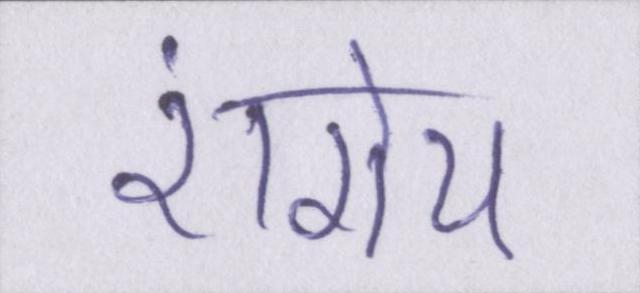 रांगेय